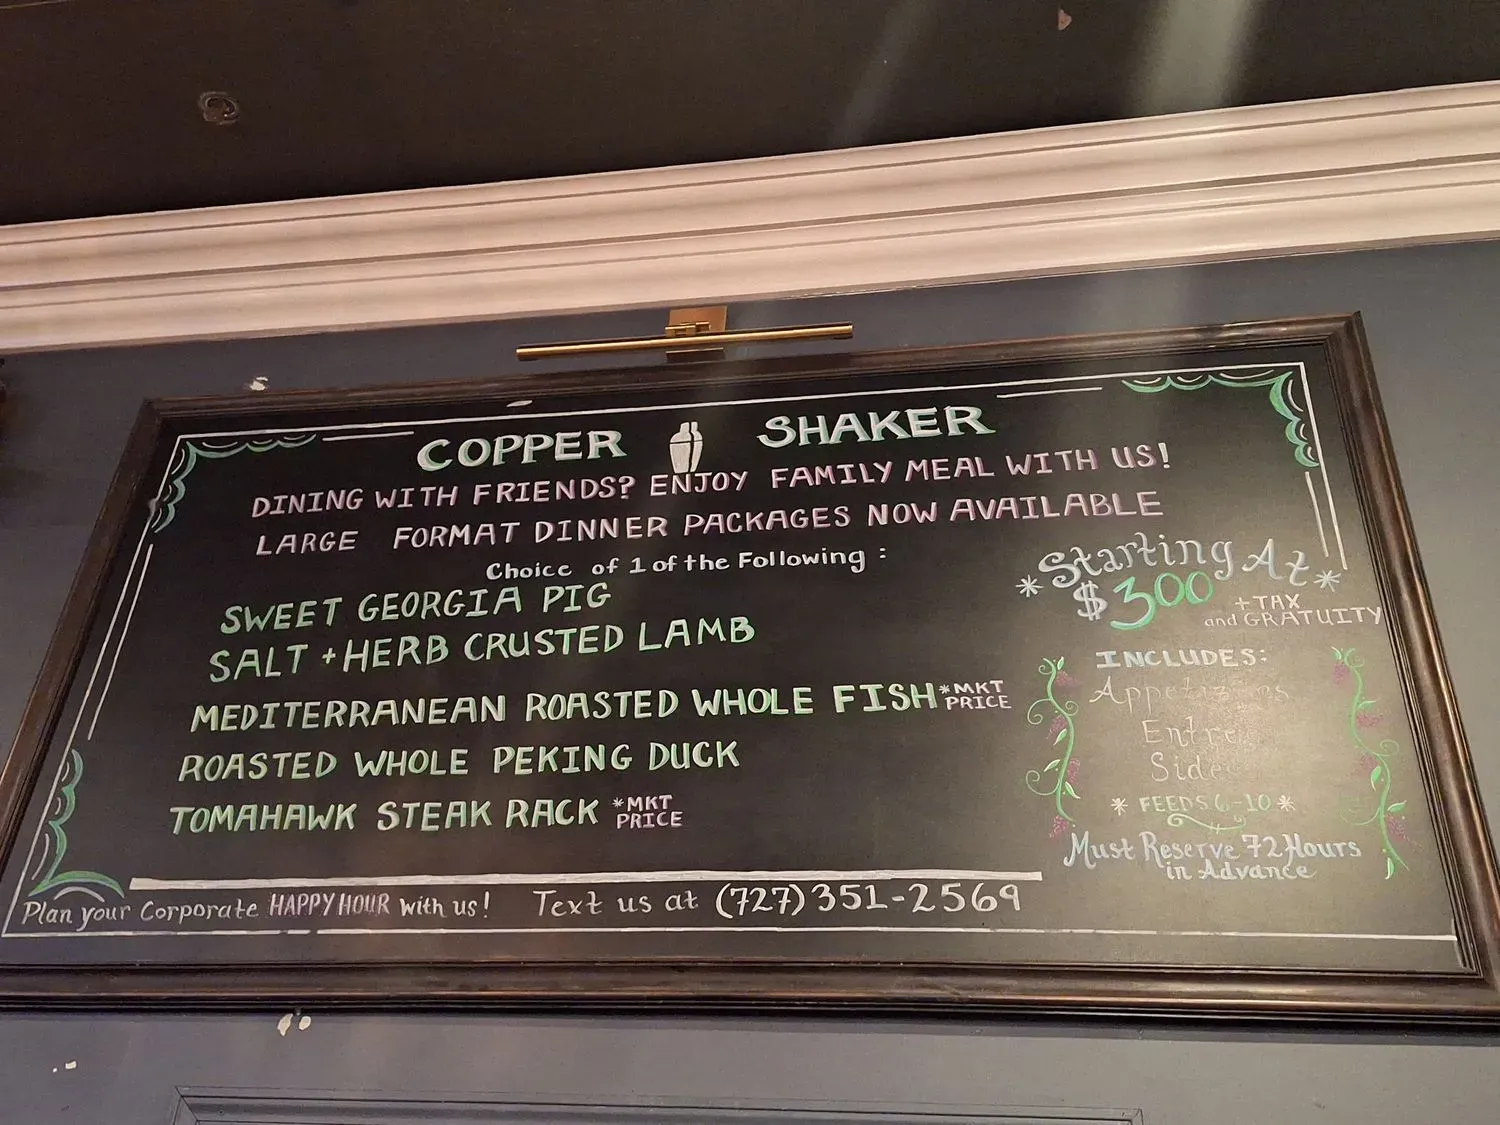 COPPER SHAKER
DINING WITH FRIENDS? ENJOY FAMILY MEAL WITH US!
LARGE FORMAT DINNER PACKAGES NOW AVAILABLE
Choice of 1 of the Following :
SWEET GEORGIA PIG
SALT + HERB CRUSTED LAMB
MEDITERRANEAN ROASTED WHOLE FISH *MKT PRICE
ROASTED WHOLE PEKING DUCK
TOMAHAWK STEAK RACK *MKT PRICE
*Starting At*
$300 + TAX
and GRATUITY
INCLUDES:
Appetizers
* FEEDS 6-10 *
Must Reserve 72 Hours
in Advance
Plan your Corporate HAPPY HOUR with us! Text us at (727) 351-2569